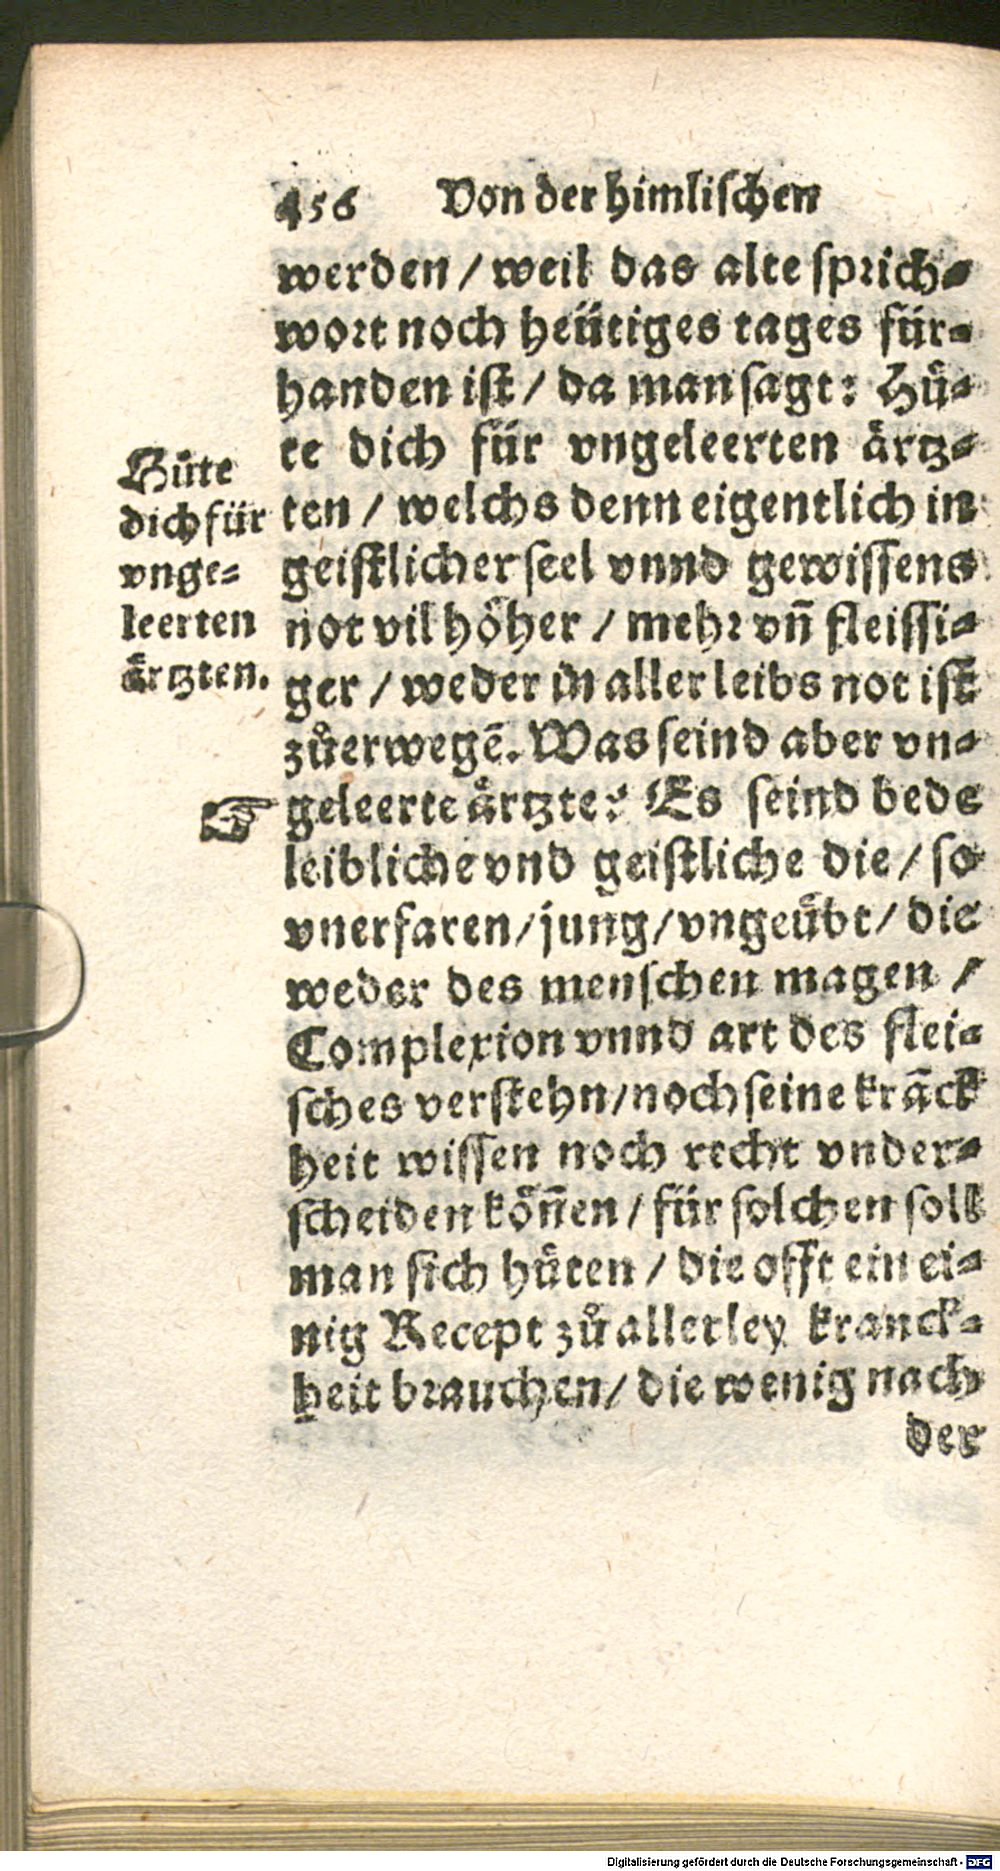 456 Von der himlischen
werden / weil das alte sprich⸗
wort noch heütiges tages für⸗
handen ist / da man sagt: Huͤ⸗
te dich für vngeleerten aͤrtz⸗
ten / welchs denn eigentlich in
geistlicher seel vnnd gewissens
not vil hoͤher / mehr vn̄ fleissi⸗
ger / weder in aller leibs not ist
zůerwegē. Was seind aber vn⸗
geleerte aͤrtzte? Es seind bede
leibliche vnd geistliche die / so
vnerfaren / jung / vngeuͤbt / die
weder des menschen magen /
Complexion vnnd art des flei⸗
sches verstehn / noch seine krāck
heit wissen noch recht vnder⸗
scheiden koͤn̄en / für solchen soll
man sich huͤten / die offt ein ei⸗
nig Recept zů allerley kranck⸗
heit brauchen / die wenig nach
der
Huͤte
dich für
vnge⸗
leerten
aͤrtzten.
☞
Digitalisierung gefördert durch die Deutsche Forschungsgemeinschaft - DFG